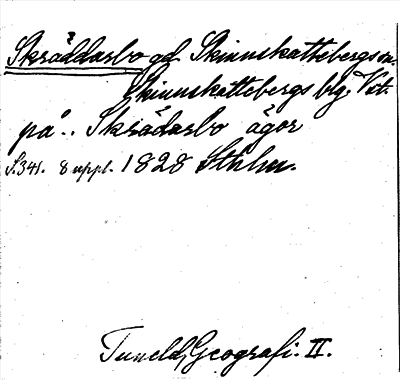 Skräddarbo gd Skinnskattebergs sn.
Skinnskattebergs blg. Vstm.
på.. Skrädarbo ägor
S.341. 8 uppl. 1828 Sthlm.
Tuneld, Geografi. II.